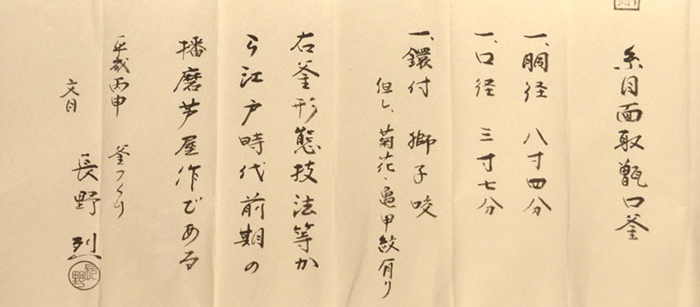 糸目面取甑口釜
一、胴径 八寸四分
一、口径 三寸七分
一、鐶付 獅子咬
但し、菊花・亀甲紋有り
右釜形態技法等か
ら江戸時代前期の
播磨芦屋作である
平成丙申 釜つくり
文月 長野烈